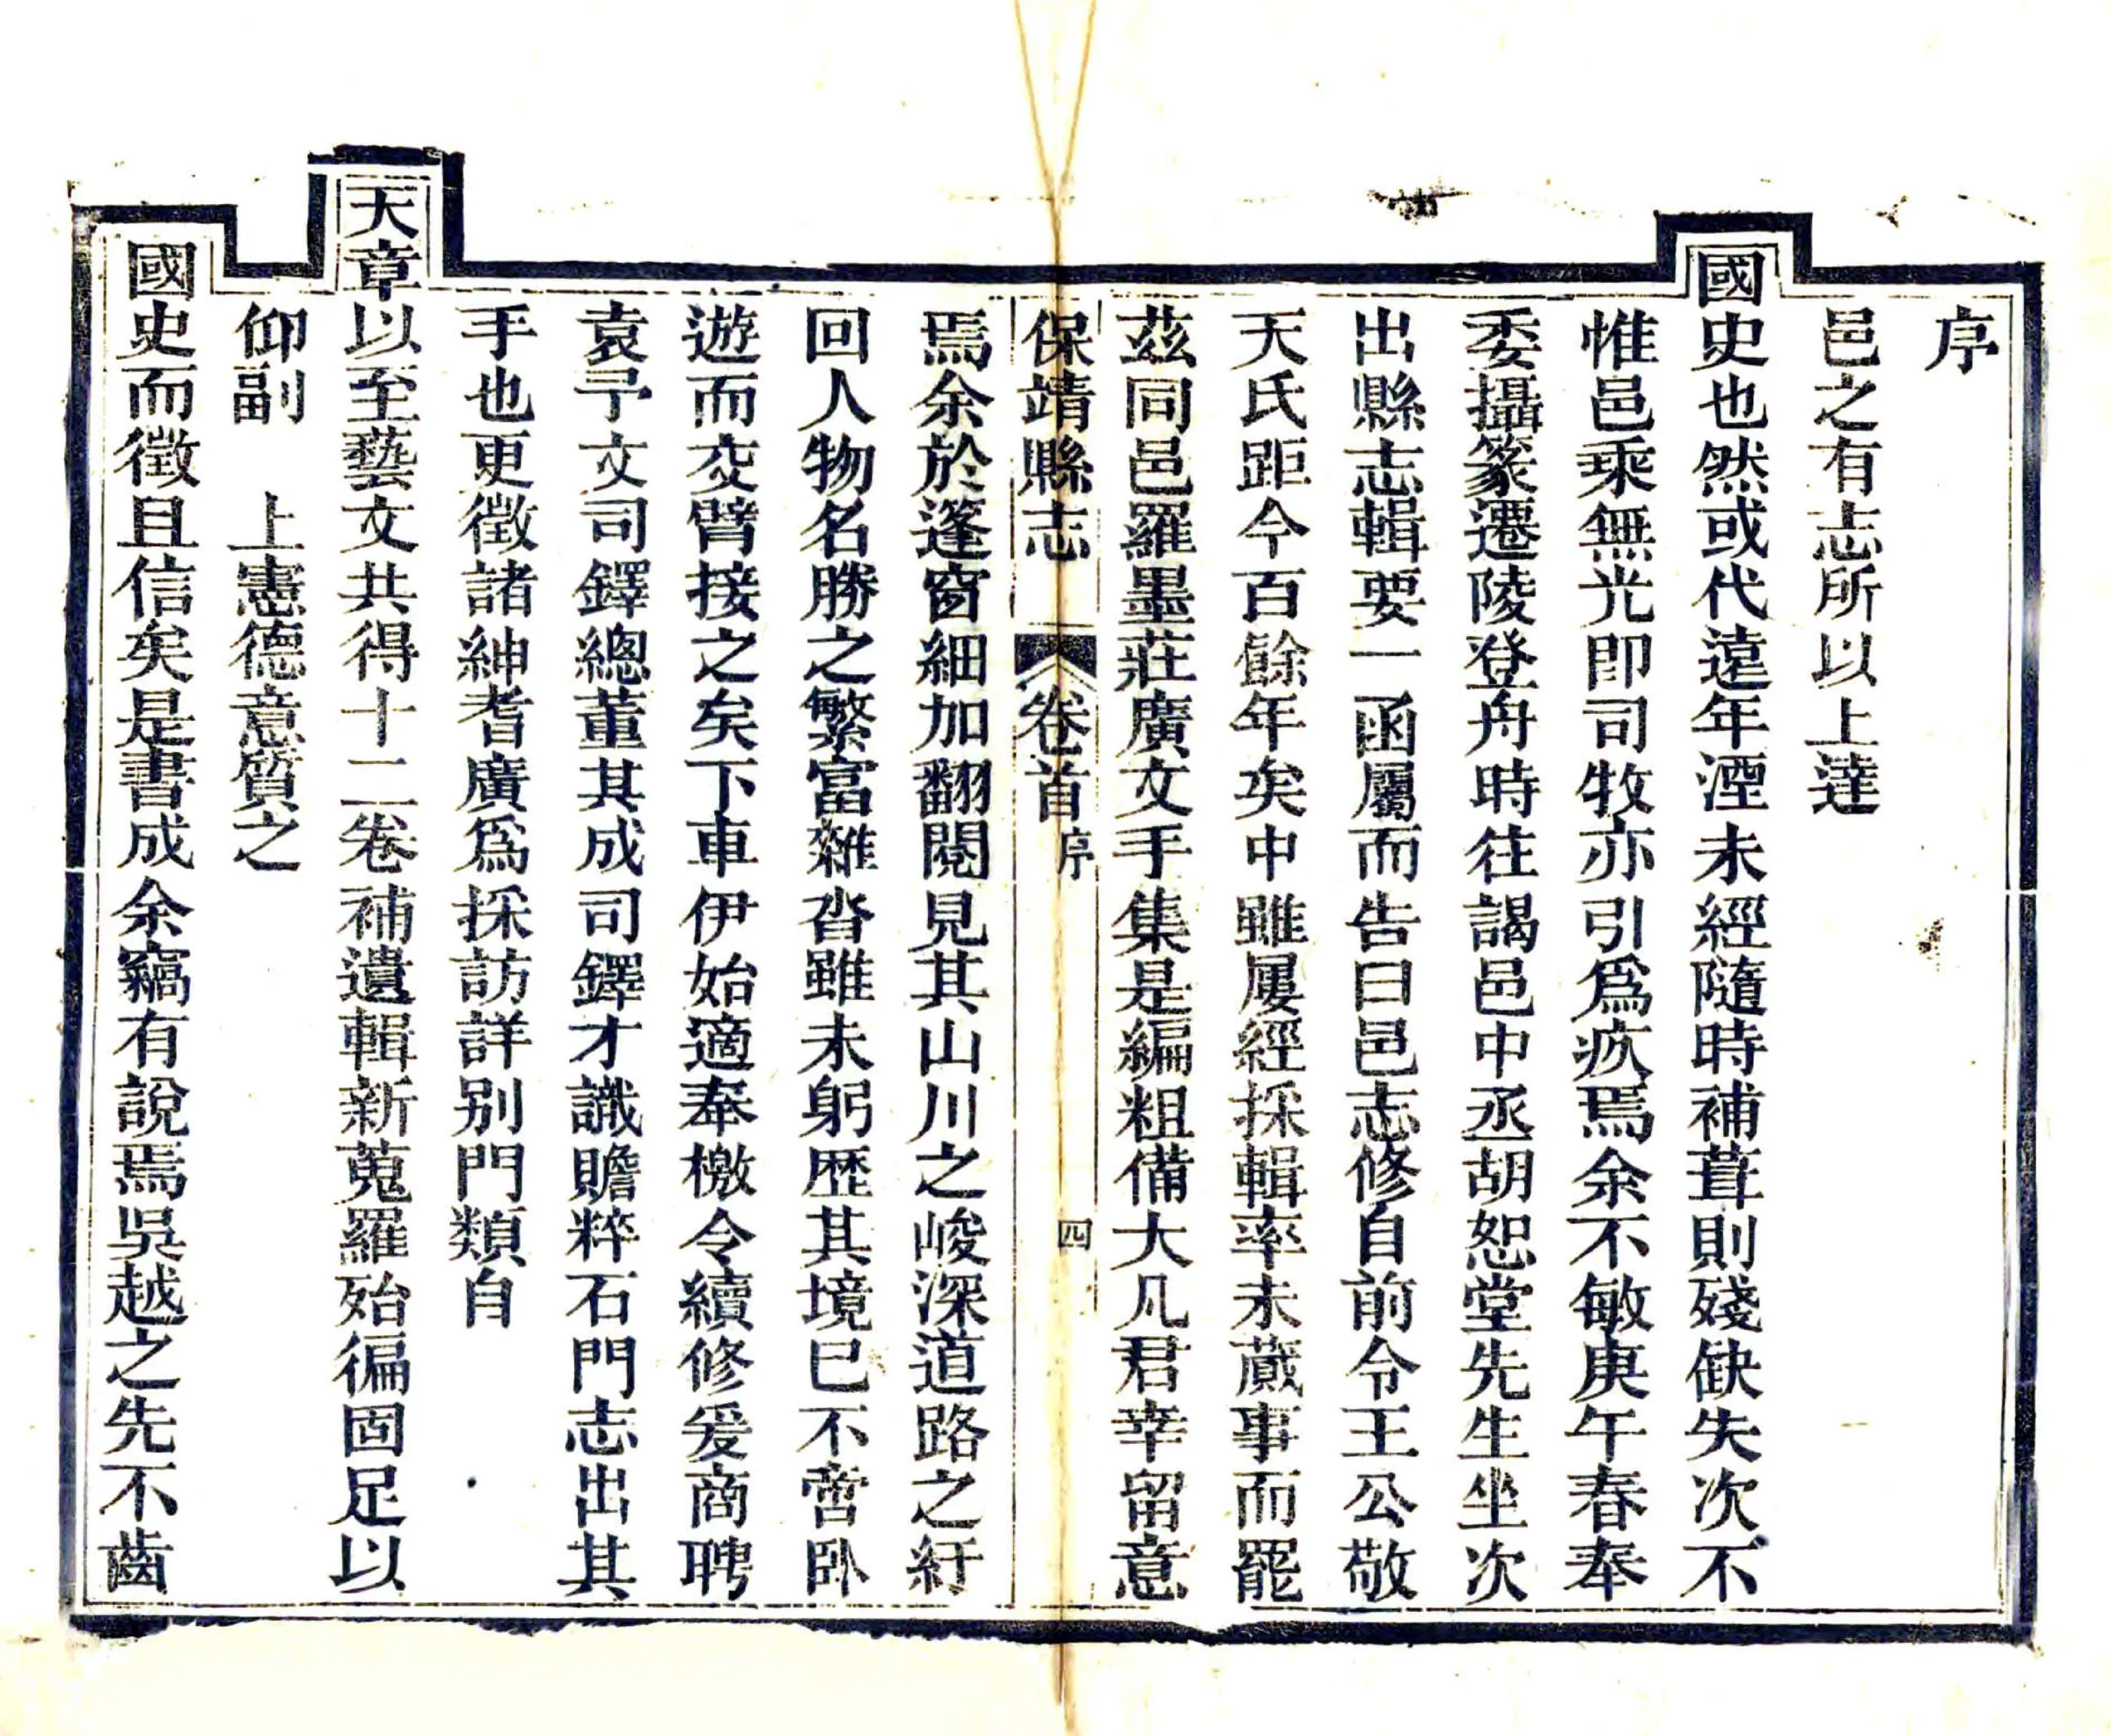 序
邑之有志所以上達
國史也然或代遠年湮未經隨時補葺則殘缺失次不
惟邑乘無光卽司牧亦引爲疚焉余不敏庚午春奉
委攝篆遷陵登舟時往謁邑中丞胡恕堂先生坐次
出縣志輯要一函屬而告曰邑志修自前令王公敬
天氏距今百餘年矣中雖屢經採輯率未蕆事而罷
茲同邑羅墨莊廣文手集是編粗備大凡君幸留意
保靖縣志 卷首 序 四
焉余於蓬窗細加翻閱見其山川之峻深道路之紆
回人物名勝之繁富雜沓雖未躬歷其境已不啻臥
遊而交臂接之矣下車伊始適奉檄令續修爰商聘
袁予文司鐸總董其成司鐸才識贍粹石門志出其
手也更徵諸紳耆廣爲採訪詳別門類自
天章以至藝文共得十二卷補遺輯新蒐羅殆徧固足以
仰副 上憲德意質之
國史而徵且信矣是書成余竊有說焉吳越之先不齒